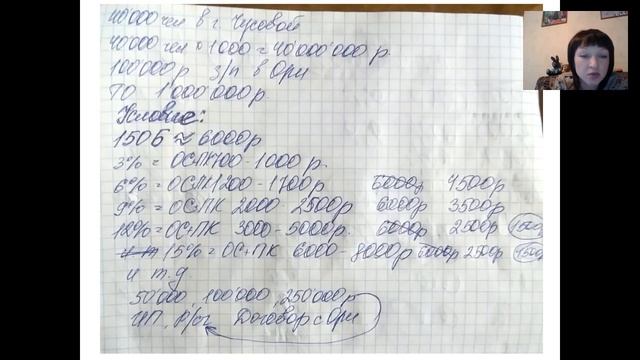 40000 чел в г. Чусовой
40000 чел * 1000 = 40'000'000 р.
100'000 р з/п в Ори
ТО 1'000'000 р.
Условие:
150Б ≈ 6000р
3% = ОС+ПК 700 - 1000 р.
6% = ОС+ПК 1200 - 1700р 6000р 4500р
9% = ОС+ПК 2000 - 2500р 6000р 3500р
12% = ОС+ПК 3000 - 5000р. 6000р 2500р 1500р
15% = ОС+ПК 6000 - 8000р 6000р 2500р 1500р
и т.д
50'000, 100'000, 250'000р
ИП, Р/сч Договор с Ори